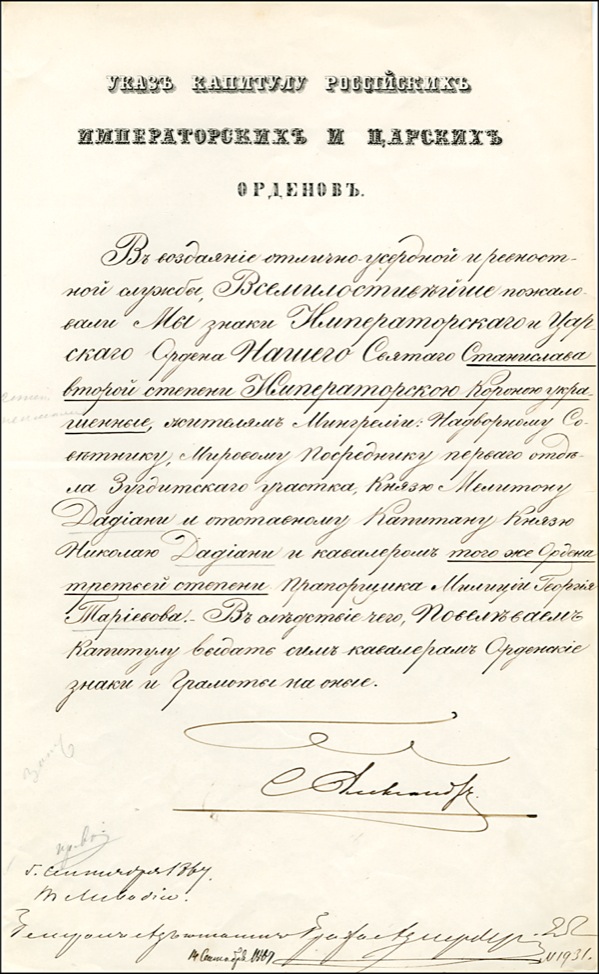 УКАЗЪ КАПИТУЛУ РОССІЙСКИХЪ
ИМПЕРАТОРСКИХЪ И ЦАРСКИХЪ
ОРДЕНОВЪ.
Въ воздаяніе отлично-усердной и ревност-
ной службы, Всемилостивѣйше пожало-
вали Мы знаки Императорскаго и Цар-
скаго Ордена Нашего Святаго Станислава
второй степени Императорскою Короною укра-
шенные, жителямъ Мингреліи: Надворному Со-
вѣтнику, Мировому Посреднику перваго отдѣ-
ла Зугдитскаго участка, Князю Мелитону
Дадіани и отставному Капитану Князю
Николаю Дадіани и кавалеромъ того же Ордена
третьей степени Прапорщика Милиціи Георгія
Таріевова. – Въ слѣдствіе чего, Повелѣваемъ
Капитулу выдать симъ кавалерамъ Орденскіе
знаки и Грамоты на оные.
Александръ.
5. сентября 1867.
въ Ливадіи.
Графъ
14 Сентября 1867
1931.